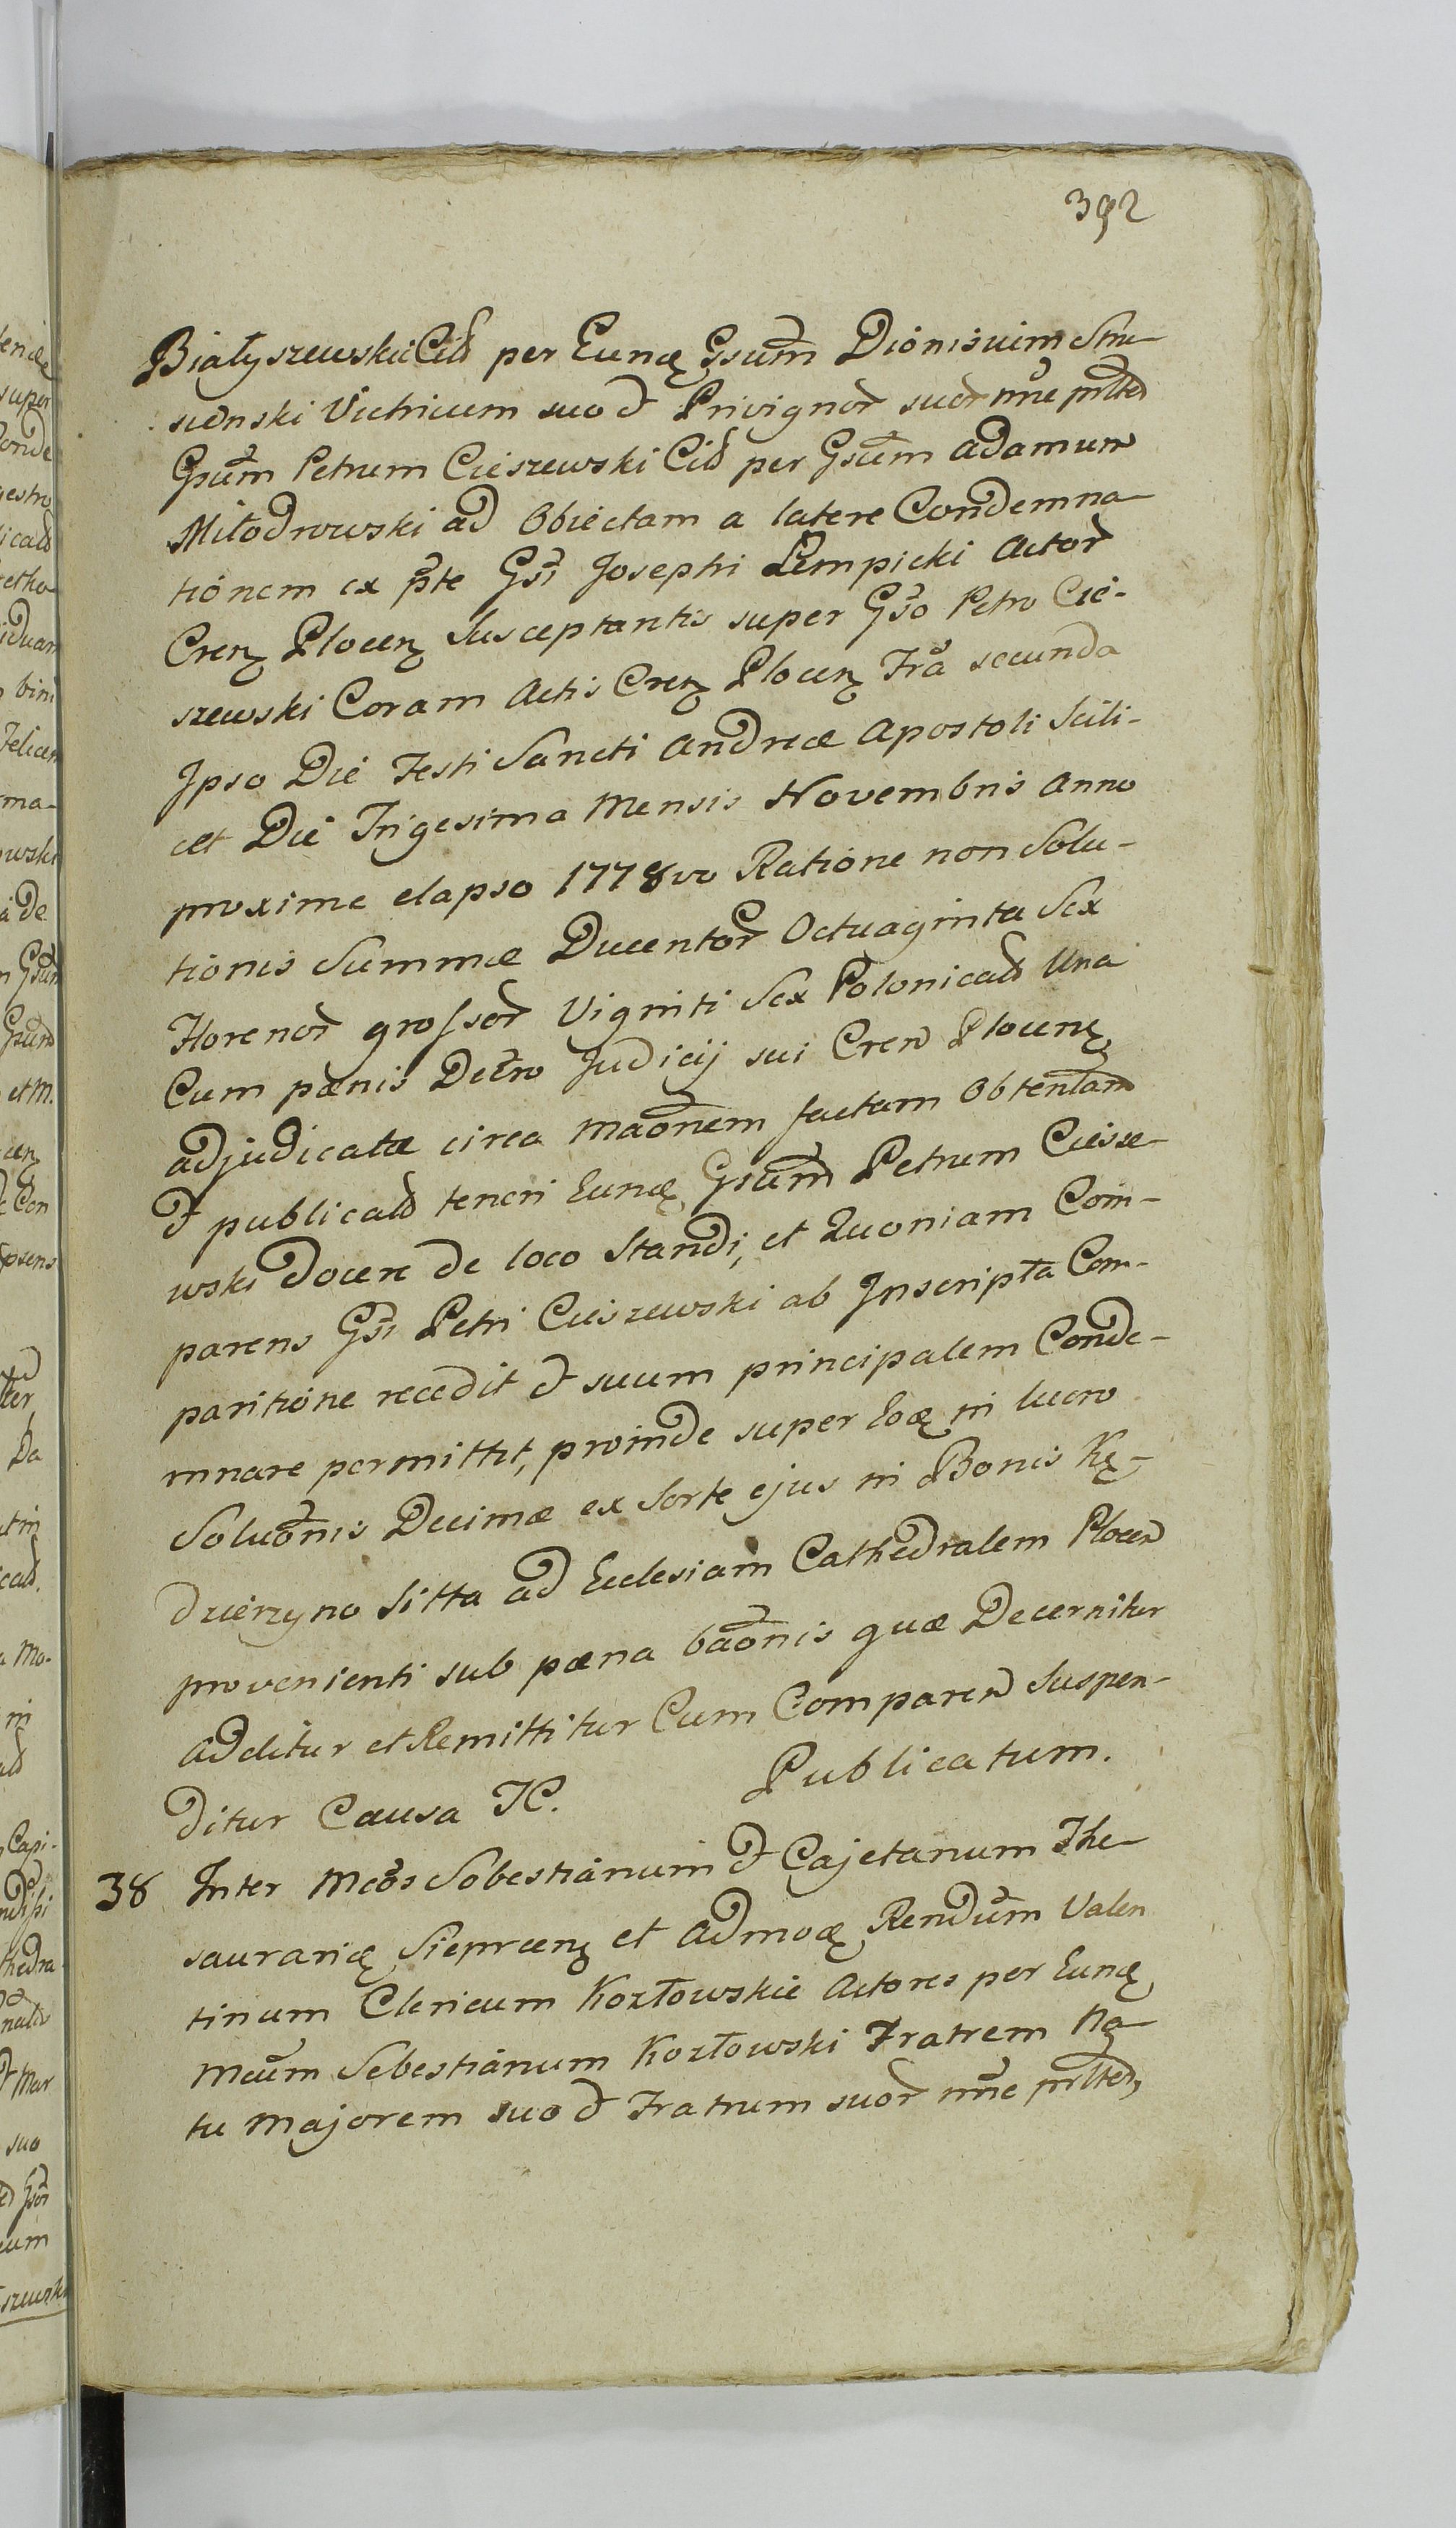 392
Białyszewskie Citt per Eundę Gsum Dionisium Smu-
sienski Vitricum suo et Privignor suor nne prlted
Gsum Petrum Cieszewski Citt per Gsum Adamum
Miłodrowski ad Obiectam a latere Condemna-
tionem ex pte Gsi Josephi Lempicki Actor
Cren Plocen Susceptantis super Gso Petro Cie-
szewski Coram Actis Cren Plocen Fra secunda
Ipso Die Festi Sancti Andreæ Apostoli Scili-
cet Die Trigesima Mensis Novembris Anno
proxime elapso 1778vo Ratione non Solu-
tionis Summæ Ducentor Octuaginta Sex
Florenor grossor Viginti Sex Polonicald Una
Cum pænis Decro Judicij sui Cren Plocen
adjudicatæ circa maonem factam Obtentam
et publicald teneri Eundę Gsum Petrum Ciesze-
wski docere de loco Standi, et Quoniam Com-
parens Gsi Petri Cieszewski ab Inscripta Com-
paritione recedit et suum principalem Conde-
mnare permittit, proinde super Eoę in lucro
Soluonis Decimæ ex Sorte ejus in Bonis Kę-
dzierzyno Sitta ad Ecclesiam Cathedralem Plocen
provenienti sub pæna baonis quæ Decernitur
additur et Remittitur Cum Comparen Suspen-
ditur Causa JC. Publicatum.
38 Inter Mcos Sobestianum et Cajetanum The-
saurarię Sieprcen et Admoę Rendum Valen
tinum Clericum Kozłowskie Actores per Eundę
Mcum Sebestianum Kozłowski Fratrem Na-
tu Majorem suo et Fratrum suor nne prlted